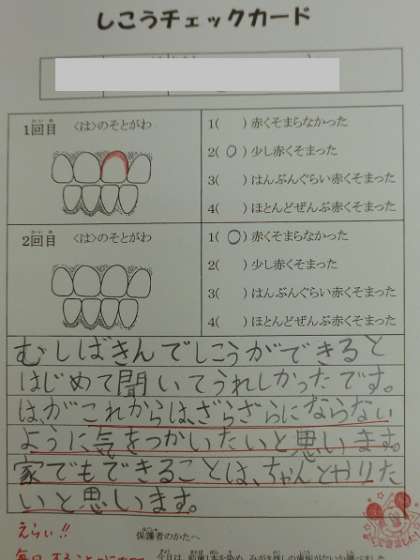 しこうチェックカード
1回目 〈は〉のそとがわ
1( )赤くそまらなかった
2(○)少し赤くそまった
3( )はんぶんぐらい赤くそまった
4( )ほとんどぜんぶ赤くそまった
2回目 〈は〉のそとがわ
1(○)赤くそまらなかった
2( )少し赤くそまった
3( )はんぶんぐらい赤くそまった
4( )ほとんどぜんぶ赤くそまった
むしばきんでしこうができると
はじめて聞いてうれしかったです。
は、がこれからは、ざらざらにならない
ように気をつかいたいと思います。
家でもできることは、ちゃんとやりた
いと思います。
えらい!!
保護者のかたへ